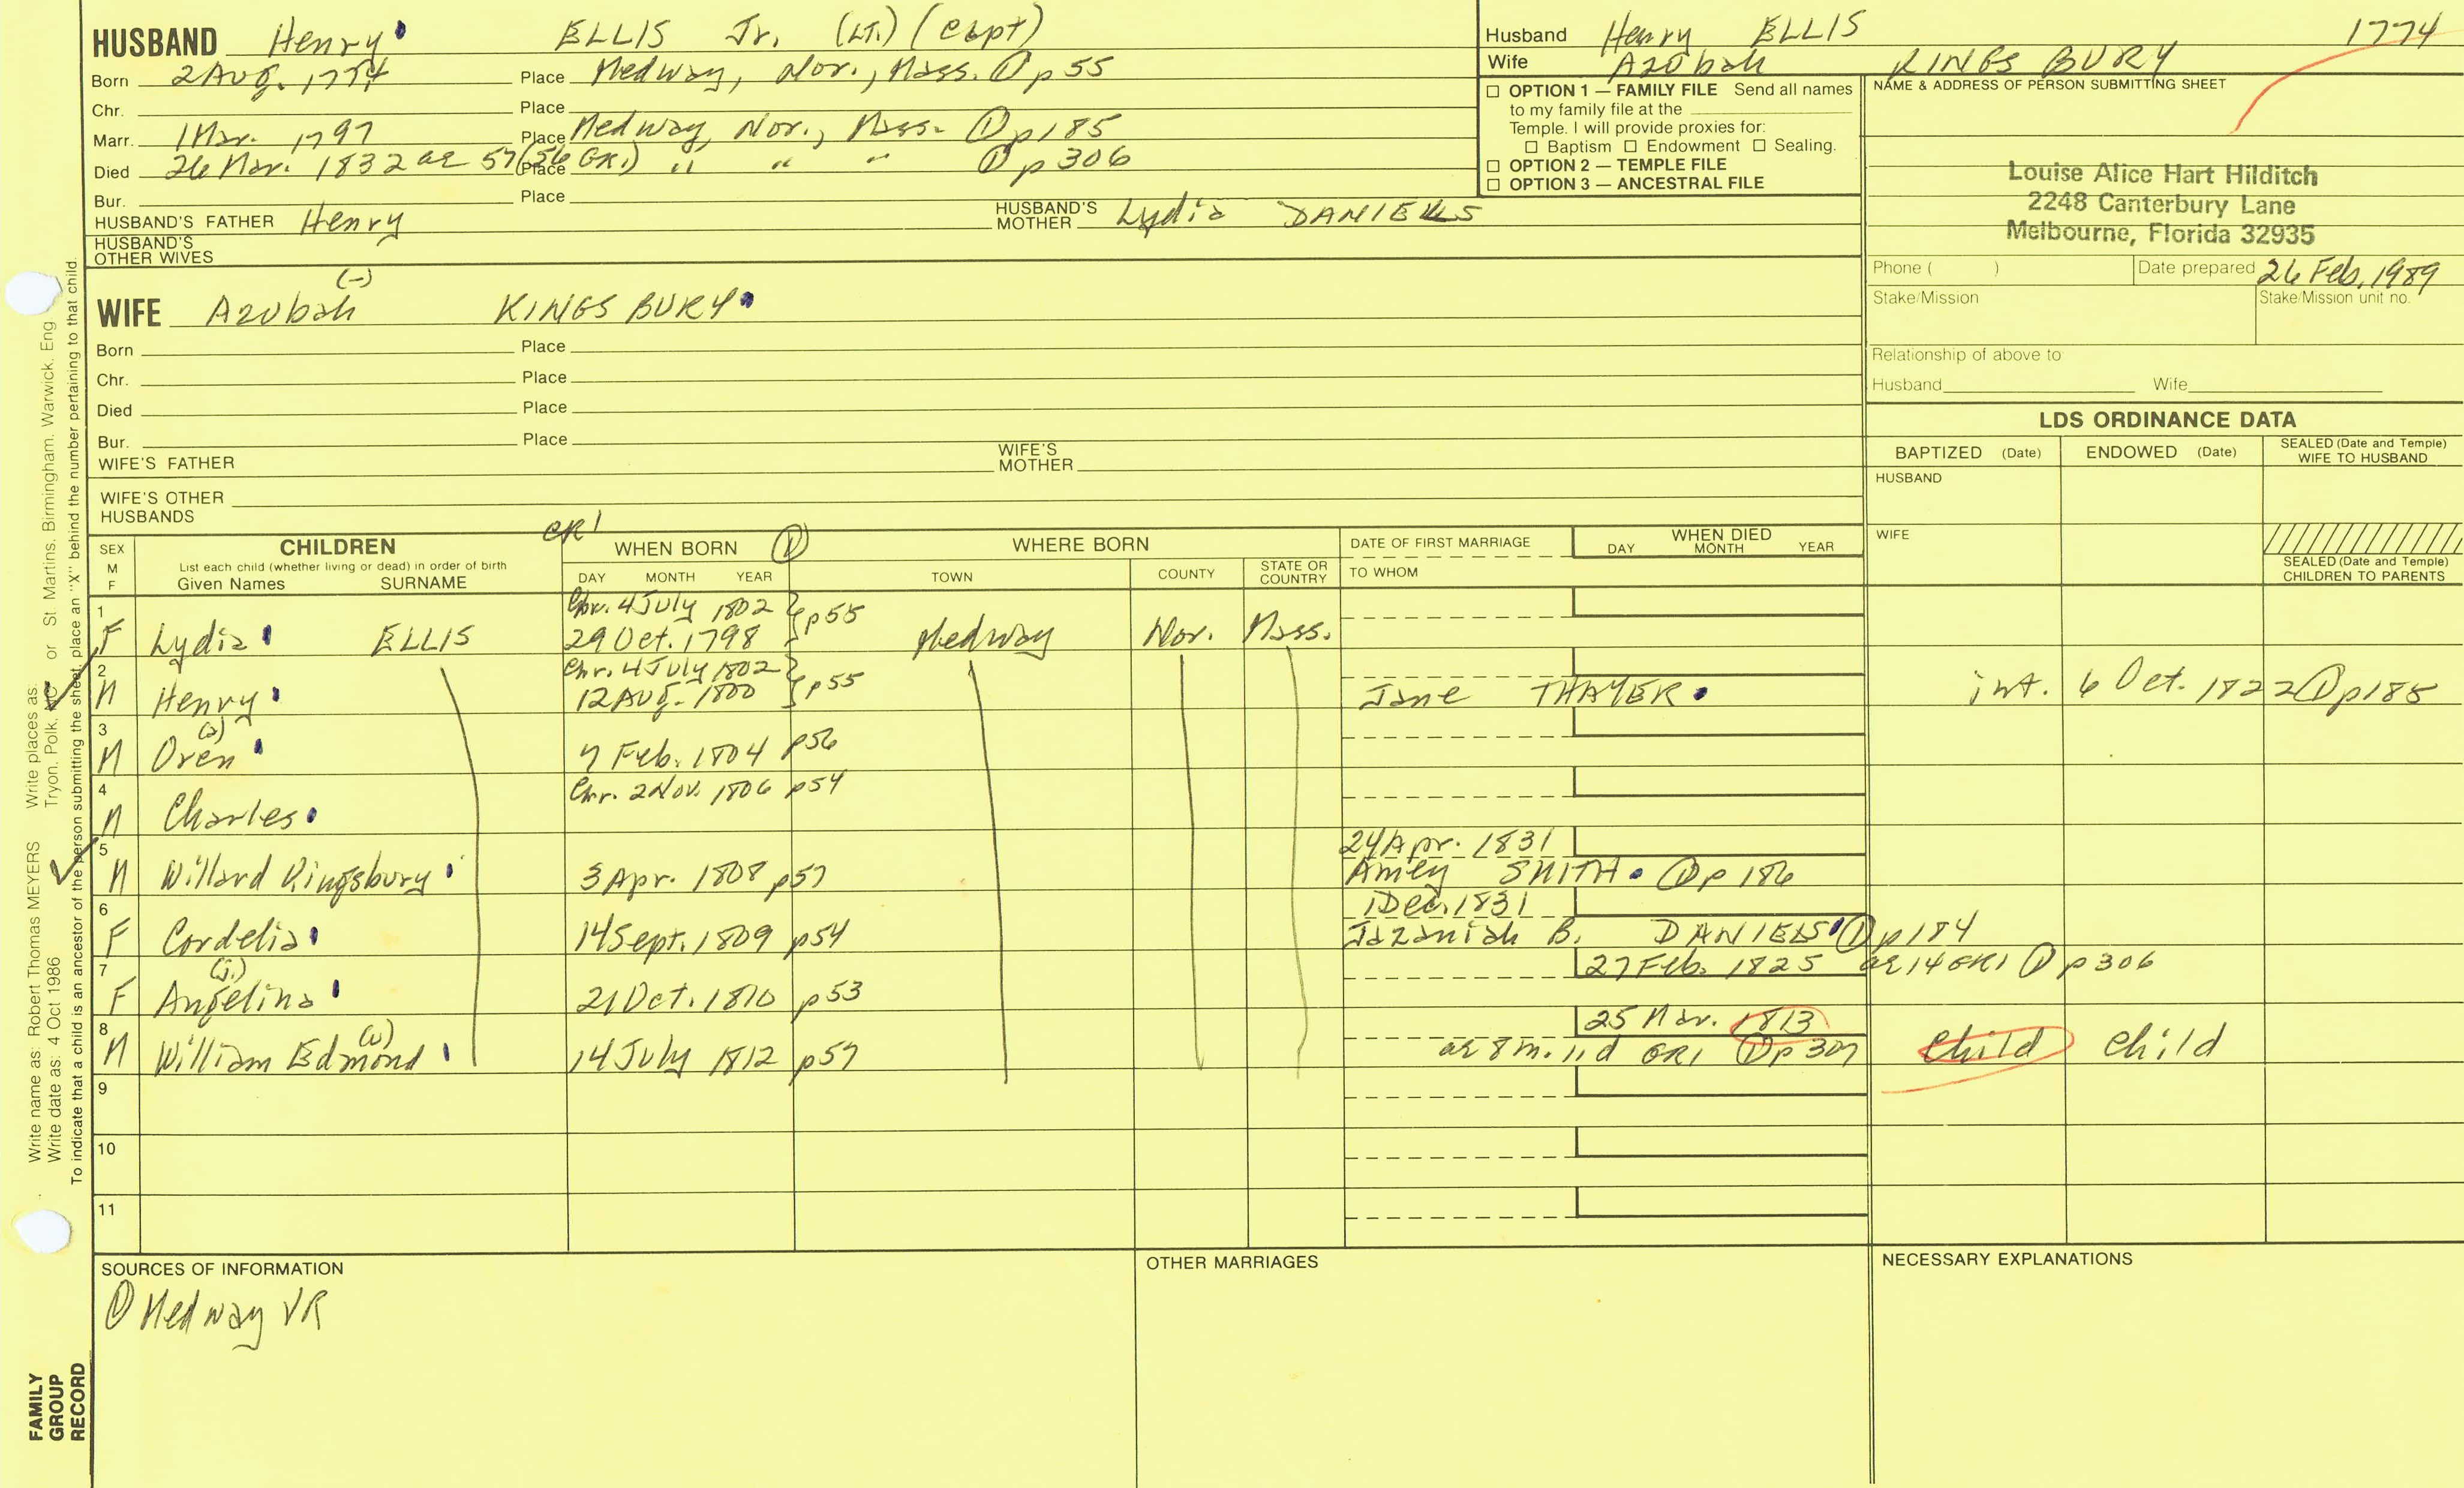 HUSBAND Henry ELLIS Jr. (LT.) (Capt)
Born 2 Aug. 1774 Place Medway, Nor., Mass. ① p 55
Chr. Place
Marr. 1 Mar. 1797 Place Medway, Nor., Mass. ① p 185
Died 26 Mar. 1832 ae 57 (56 GR1) Place " " " ① p 306
Bur. Place
HUSBAND'S FATHER Henry HUSBAND'S MOTHER Lydia DANIELLS
HUSBAND'S OTHER WIVES
Husband Henry ELLIS 1774
Wife Azubah KINGSBURY
☐ OPTION 1 — FAMILY FILE Send all names
to my family file at the
Temple. I will provide proxies for:
☐ Baptism ☐ Endowment ☐ Sealing.
☐ OPTION 2 — TEMPLE FILE
☐ OPTION 3 — ANCESTRAL FILE
NAME & ADDRESS OF PERSON SUBMITTING SHEET
Louise Alice Hart Hilditch
2248 Canterbury Lane
Melbourne, Florida 32935
Phone ( ) Date prepared 26 Feb. 1989
Stake/Mission Stake/Mission unit no.
Relationship of above to
Husband Wife
(-)
WIFE Azubah KINGSBURY
Born Place
Chr. Place
Died Place
Bur. Place
WIFE'S FATHER WIFE'S MOTHER
WIFE'S OTHER HUSBANDS
LDS ORDINANCE DATA
BAPTIZED (Date) ENDOWED (Date) SEALED (Date and Temple) WIFE TO HUSBAND
HUSBAND
WIFE
SEALED (Date and Temple) CHILDREN TO PARENTS
CR1
SEX M F CHILDREN WHEN BORN ① WHERE BORN DATE OF FIRST MARRIAGE WHEN DIED
List each child (whether living or dead) in order of birth
Given Names SURNAME DAY MONTH YEAR TOWN COUNTY STATE OR COUNTRY TO WHOM DAY MONTH YEAR
1 Chr. 4 July 1802 } p 55
F Lydia ELLIS 29 Oct. 1798 Medway Nor. Mass.
2 Chr. 4 July 1802 } p 55
M Henry 12 Aug. 1800 Jane THAYER int. 6 Oct. 1822 ① p 185
3 (a)
M Oren 7 Feb. 1804 p 56
4 Chr. 2 Nov. 1806 p 54
M Charles
5 24 Apr. 1831
M Willard Kingsbury 3 Apr. 1808 p 57 Amey SMITH ① p 186
6 1 Dec. 1831
F Cordelia 14 Sept. 1809 p 54 Jazaniah B. DANIELS ① p 184
7 (J.) 27 Feb. 1825 ae 14 GR1 ① p 306
F Angelina 21 Oct. 1810 p 53
8 (u) 25 Mar. 1813
M William Edmond 14 July 1812 p 57 ae 8 m. 11 d GR1 ① p 307 Child Child
9
10
11
SOURCES OF INFORMATION
① Medway VR
OTHER MARRIAGES
NECESSARY EXPLANATIONS
Write name as: Robert Thomas MEYERS Write places as: Tryon, Polk, NC or St Martins, Birmingham, Warwick, Eng
Write date as: 4 Oct 1986
To indicate that a child is an ancestor of the person submitting the sheet, place an "X" behind the number pertaining to that child.
FAMILY
GROUP
RECORD